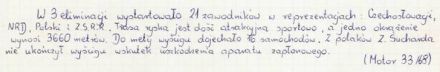 W 3 eliminacji wystartowało 21 zawodników w reprezentacjach: Czechosłowacji,
NRD, Polski i Z.S.R.R. Trasa ryska jest dość atrakcyjną sportowo, a jedno okrążenie
wynosi 3660 metrów. Do mety wyścigu dojechało 16 samochodów. Z polaków Z. Suchanda
nie ukończył wyścigu wskutek uszkodzenia aparatu zapłonowego.
(Motor 33/68)